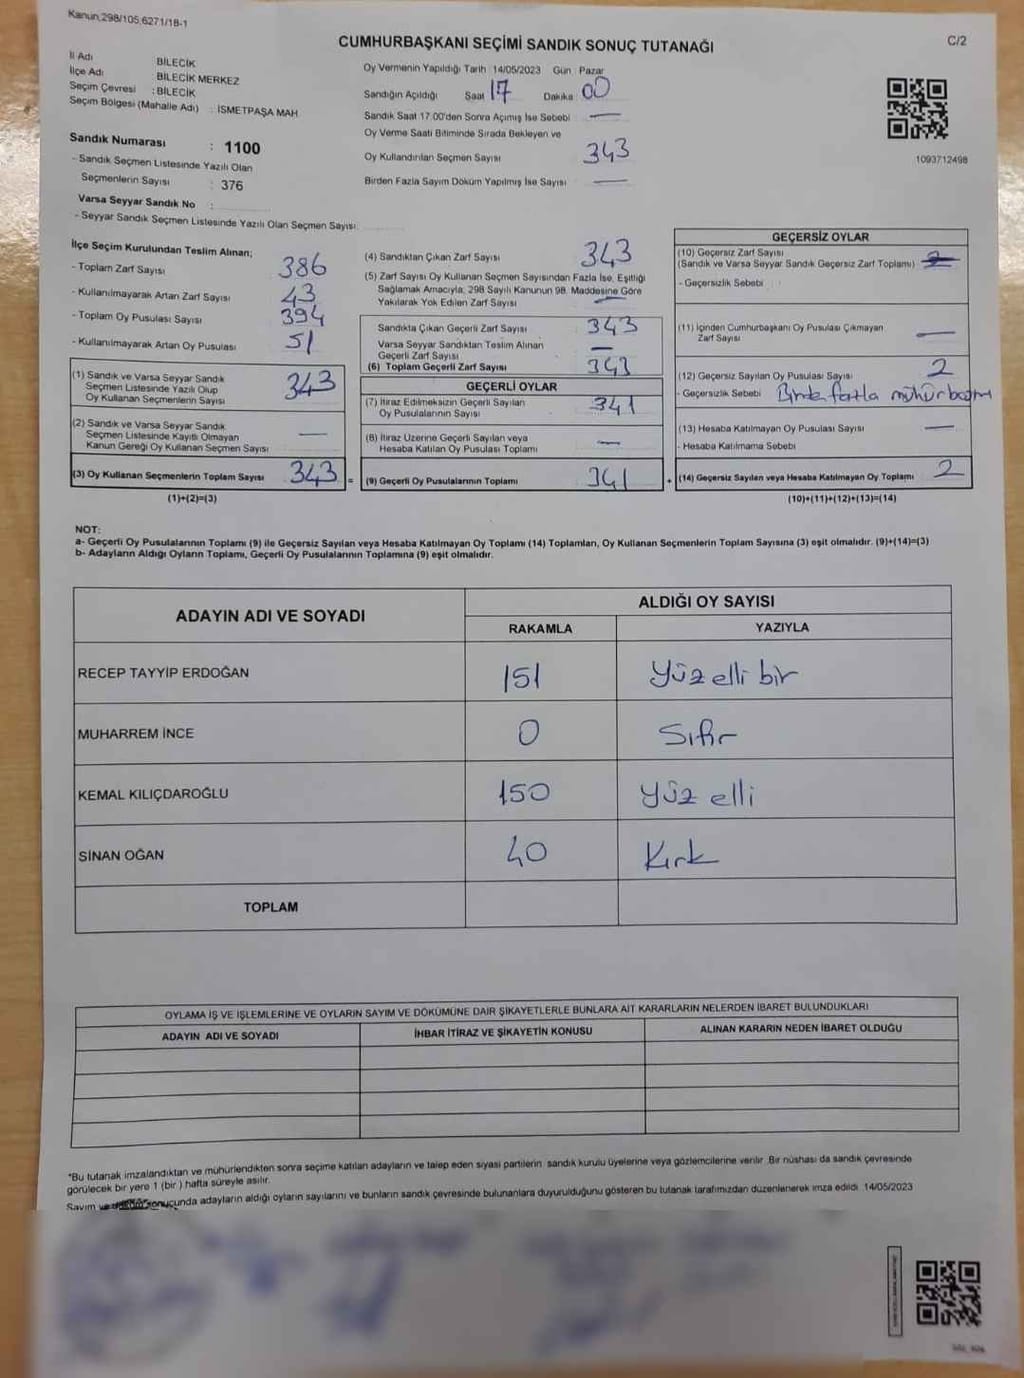 Kanun,298/105,6271/18-1
C/2
CUMHURBAŞKANI SEÇİMİ SANDIK SONUÇ TUTANAĞI
İl Adı BİLECİK
İlçe Adı BİLECİK MERKEZ
Seçim Çevresi : BİLECİK
Seçim Bölgesi (Mahalle Adı) : İSMETPAŞA MAH
Sandık Numarası : 1100
- Sandık Seçmen Listesinde Yazılı Olan
Seçmenlerin Sayısı : 376
Varsa Seyyar Sandık No :
- Seyyar Sandık Seçmen Listesinde Yazılı Olan Seçmen Sayısı:
Oy Vermenin Yapıldığı Tarih 14/05/2023 Gün Pazar
Sandığın Açıldığı Saat 17 Dakika 00
Sandık Saat 17.00'den Sonra Açımış İse Sebebi —
Oy Verme Saati Bitiminde Sırada Bekleyen ve
Oy Kullandırılan Seçmen Sayısı 343
Birden Fazla Sayım Döküm Yapılmış İse Sayısı —
1093712498
İlçe Seçim Kurulundan Teslim Alınan;
- Toplam Zarf Sayısı 386
- Kullanılmayarak Artan Zarf Sayısı 43
- Toplam Oy Pusulası Sayısı 394
- Kullanılmayarak Artan Oy Pusulası 51
(1) Sandık ve Varsa Seyyar Sandık
Seçmen Listesinde Yazılı Olup
Oy Kullanan Seçmenlerin Sayısı 343
(2) Sandık ve Varsa Seyyar Sandık
Seçmen Listesinde Kayıtlı Olmayan
Kanun Gereği Oy Kullanan Seçmen Sayısı —
(3) Oy Kullanan Seçmenlerin Toplam Sayısı 343 =
(1)+(2)=(3)
(4) Sandıktan Çıkan Zarf Sayısı 343
(5) Zarf Sayısı Oy Kullanan Seçmen Sayısından Fazla İse, Eşitliği
Sağlamak Amacıyla, 298 Sayılı Kanunun 98. Maddesine Göre
Yakılarak Yok Edilen Zarf Sayısı —
Sandıkta Çıkan Geçerli Zarf Sayısı 343
Varsa Seyyar Sandıktan Teslim Alınan
Geçerli Zarf Sayısı —
(6) Toplam Geçerli Zarf Sayısı 343
GEÇERLİ OYLAR
(7) İtiraz Edilmeksizin Geçerli Sayılan
Oy Pusulalarının Sayısı 341
(8) İtiraz Üzerine Geçerli Sayılan veya
Hesaba Katılan Oy Pusulası Toplamı —
(9) Geçerli Oy Pusulalarının Toplamı 341 +
GEÇERSİZ OYLAR
(10) Geçersiz Zarf Sayısı
(Sandık ve Varsa Seyyar Sandık Geçersiz Zarf Toplamı) —
- Geçersizlik Sebebi :
(11) İçinden Cumhurbaşkanı Oy Pusulası Çıkmayan
Zarf Sayısı —
(12) Geçersiz Sayılan Oy Pusulası Sayısı 2
- Geçersizlik Sebebi Birden fazla mühür
(13) Hesaba Katılmayan Oy Pusulası Sayısı —
- Hesaba Katılmama Sebebi
(14) Geçersiz Sayılan veya Hesaba Katılmayan Oy Toplamı 2
(10)+(11)+(12)+(13)=(14)
NOT:
a- Geçerli Oy Pusulalarının Toplamı (9) ile Geçersiz Sayılan veya Hesaba Katılmayan Oy Toplamı (14) Toplamları, Oy Kullanan Seçmenlerin Toplam Sayısına (3) eşit olmalıdır. (9)+(14)=(3)
b- Adayların Aldığı Oyların Toplamı, Geçerli Oy Pusulalarının Toplamına (9) eşit olmalıdır.
ADAYIN ADI VE SOYADI ALDIĞI OY SAYISI
RAKAMLA YAZIYLA
RECEP TAYYİP ERDOĞAN 151 Yüz elli bir
MUHARREM İNCE 0 Sıfır
KEMAL KILIÇDAROĞLU 150 Yüz elli
SİNAN OĞAN 40 Kırk
TOPLAM
OYLAMA İŞ VE İŞLEMLERİNE VE OYLARIN SAYIM VE DÖKÜMÜNE DAİR ŞİKAYETLERLE BUNLARA AİT KARARLARIN NELERDEN İBARET BULUNDUKLARI
ADAYIN ADI VE SOYADI İHBAR İTİRAZ VE ŞİKAYETİN KONUSU ALINAN KARARIN NEDEN İBARET OLDUĞU
*Bu tutanak imzalandıktan ve mühürlendikten sonra seçime katılan adayların ve talep eden siyasi partilerin sandık kurulu üyelerine veya gözlemcilerine verilir. Bir nüshası da sandık çevresinde
görülecek bir yere 1 (bir ) hafta süreyle asılır.
Sayım ve sonuçunda adayların aldığı oyların sayılarını ve bunların sandık çevresinde bulunanlara duyurulduğunu gösteren bu tutanak tarafımızdan düzenlenerek imza edildi. 14/05/2023